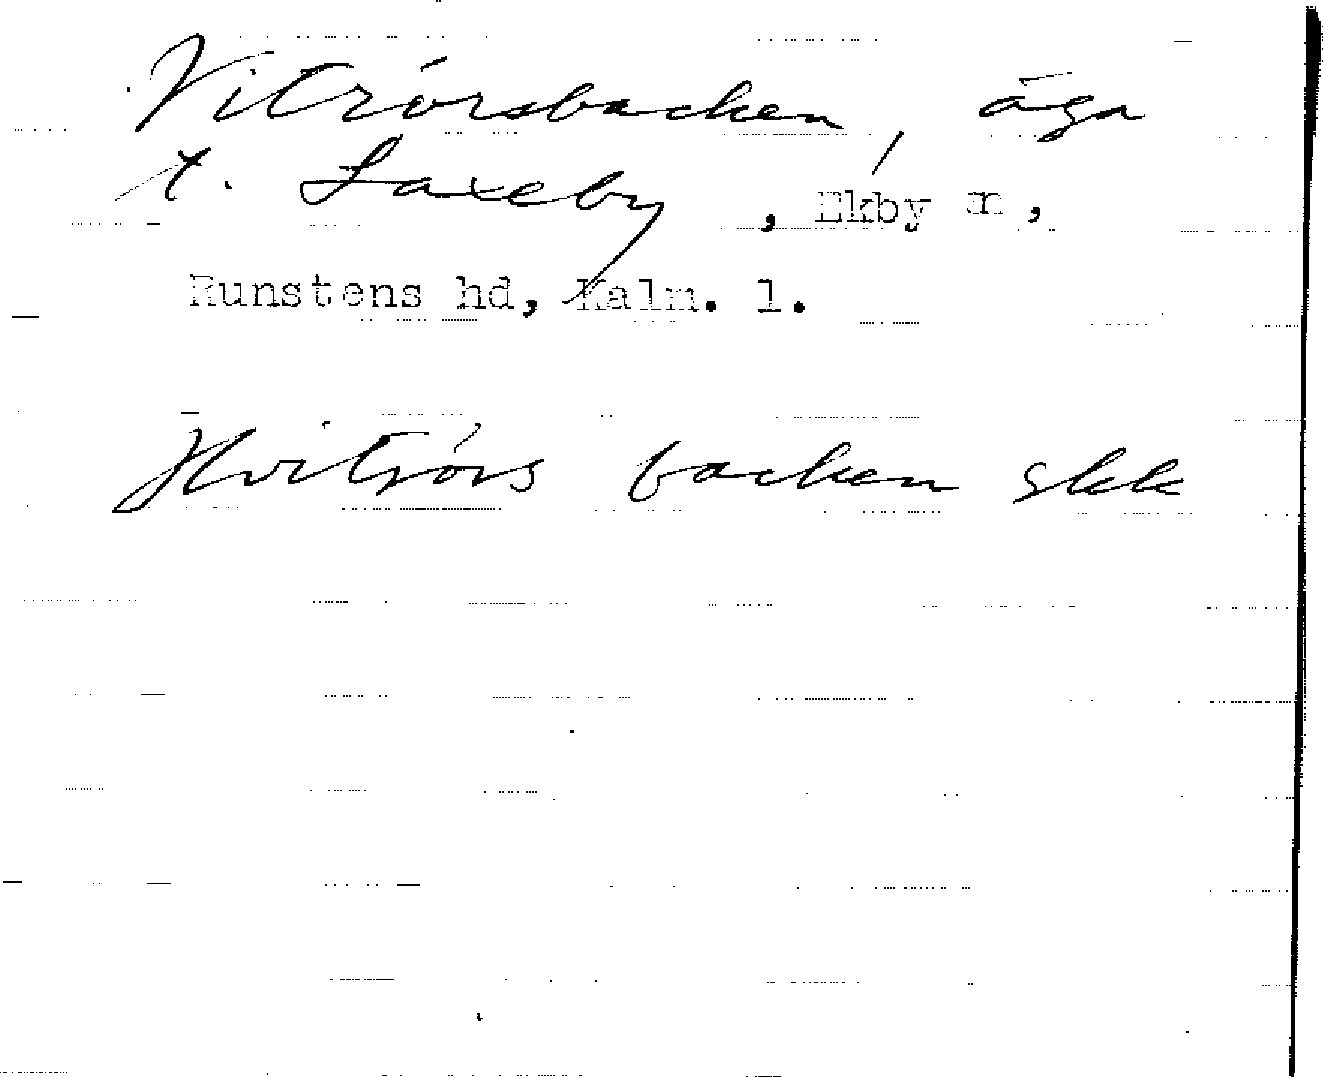 Vitrörsbacken, äga
t. Laxeby, Ekby sn,
Runstens hd, Kalm. l.
Hvitrörs backen skk